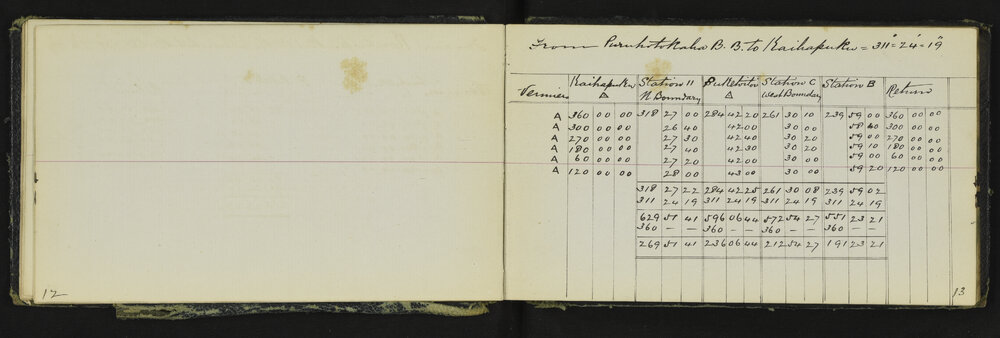 From Puruhotokaha B. B. to Kaihapuku = 311° = 24' = 19"
Vernier Kaihapuku △ Station 11 N Boundary Puketotor △ Station C West Boundary Station B Return
A 360 00 00 318 27 00 284 42 20 261 30 10 239 59 00 360 00 00
A 300 00 00 26 40 42 00 30 00 58 40 300 00 00
A 270 00 00 27 30 42 40 30 20 59 00 270 00 00
A 180 00 00 27 40 42 30 30 20 59 10 180 00 00
A 60 00 00 27 20 42 00 30 00 59 00 60 00 00
A 120 00 00 28 00 43 00 30 00 59 20 120 00 00
318 27 22 284 42 25 261 30 08 239 59 02
311 24 19 311 24 19 311 24 19 311 24 19
629 51 41 596 06 44 572 54 27 551 23 21
360 – – 360 – – 360 – – 360 – –
269 51 41 236 06 44 212 54 27 191 23 21
12
13